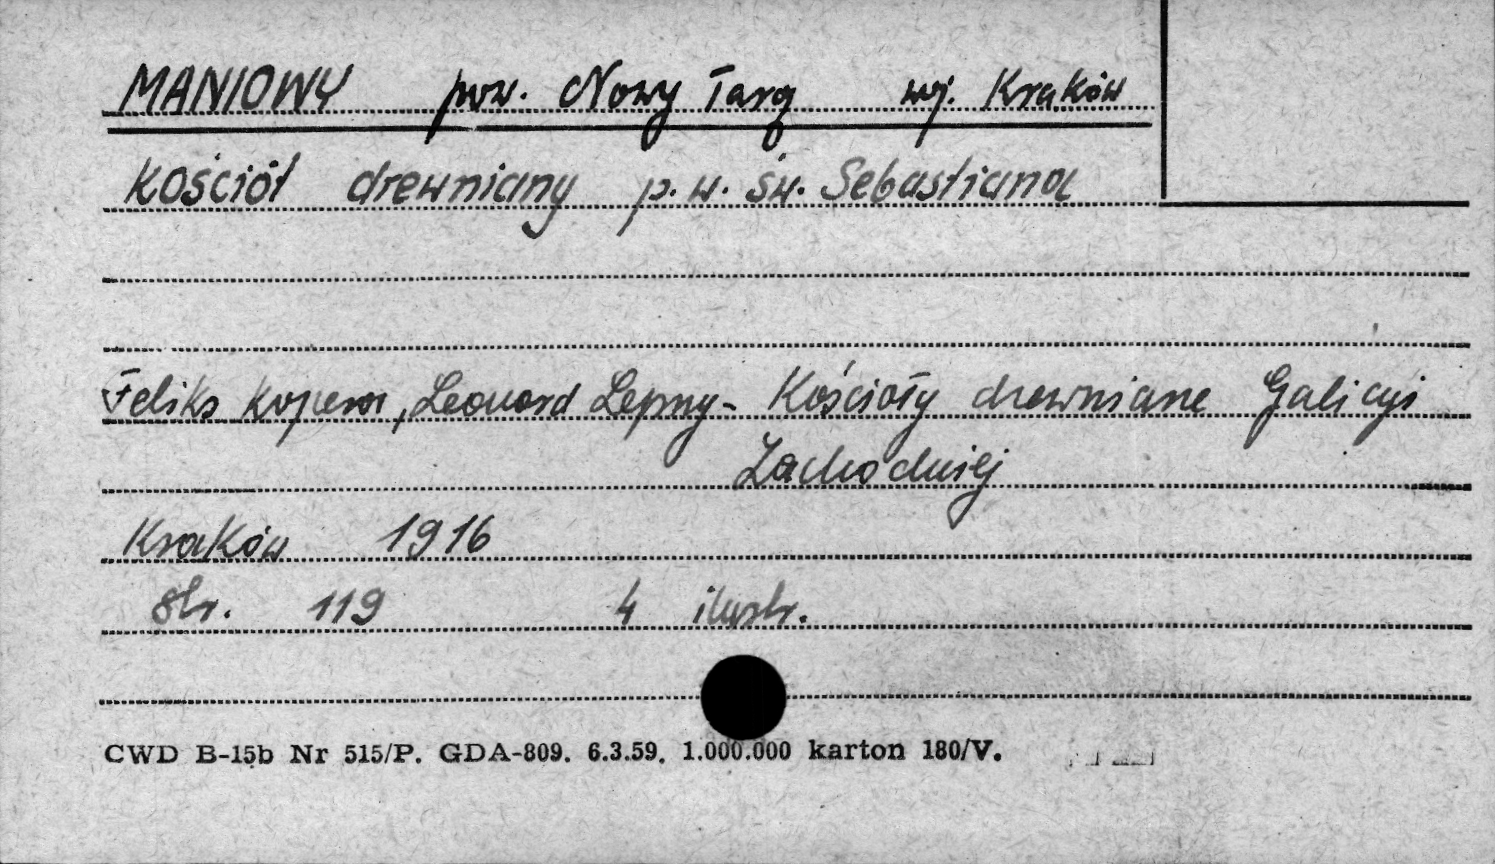 MANIOWY pow. Nowy Targ wj. Kraków
Kościół drewniany p.w. św. Sebastiana
Feliks Kopera, Leonard Lepszy - Kościoły drewniane Galicyi
Zachodniej
Kraków 1916
str. 119 4 ilustr.
CWD B-15b Nr 515/P. GDA-809. 6.3.59. 1.000.000 karton 180/V.